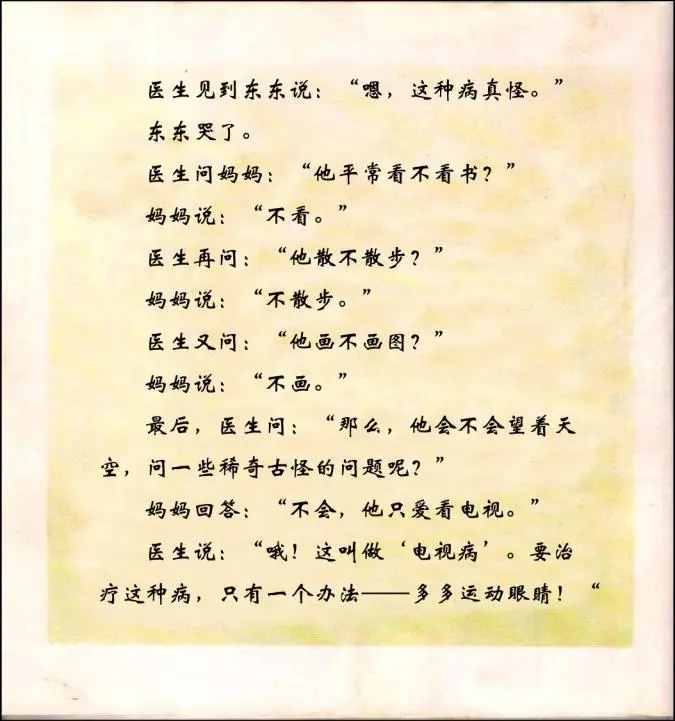 医生见到东东说：“嗯，这种病真怪。”
东东哭了。
医生问妈妈：“他平常看不看书？”
妈妈说：“不看。”
医生再问：“他散不散步？”
妈妈说：“不散步。”
医生又问：“他画不画图？”
妈妈说：“不画。”
最后，医生问：“那么，他会不会望着天
空，问一些稀奇古怪的问题呢？”
妈妈回答：“不会，他只爱看电视。”
医生说：“哦！这叫做‘电视病’。要治
疗这种病，只有一个办法——多多运动眼睛！“